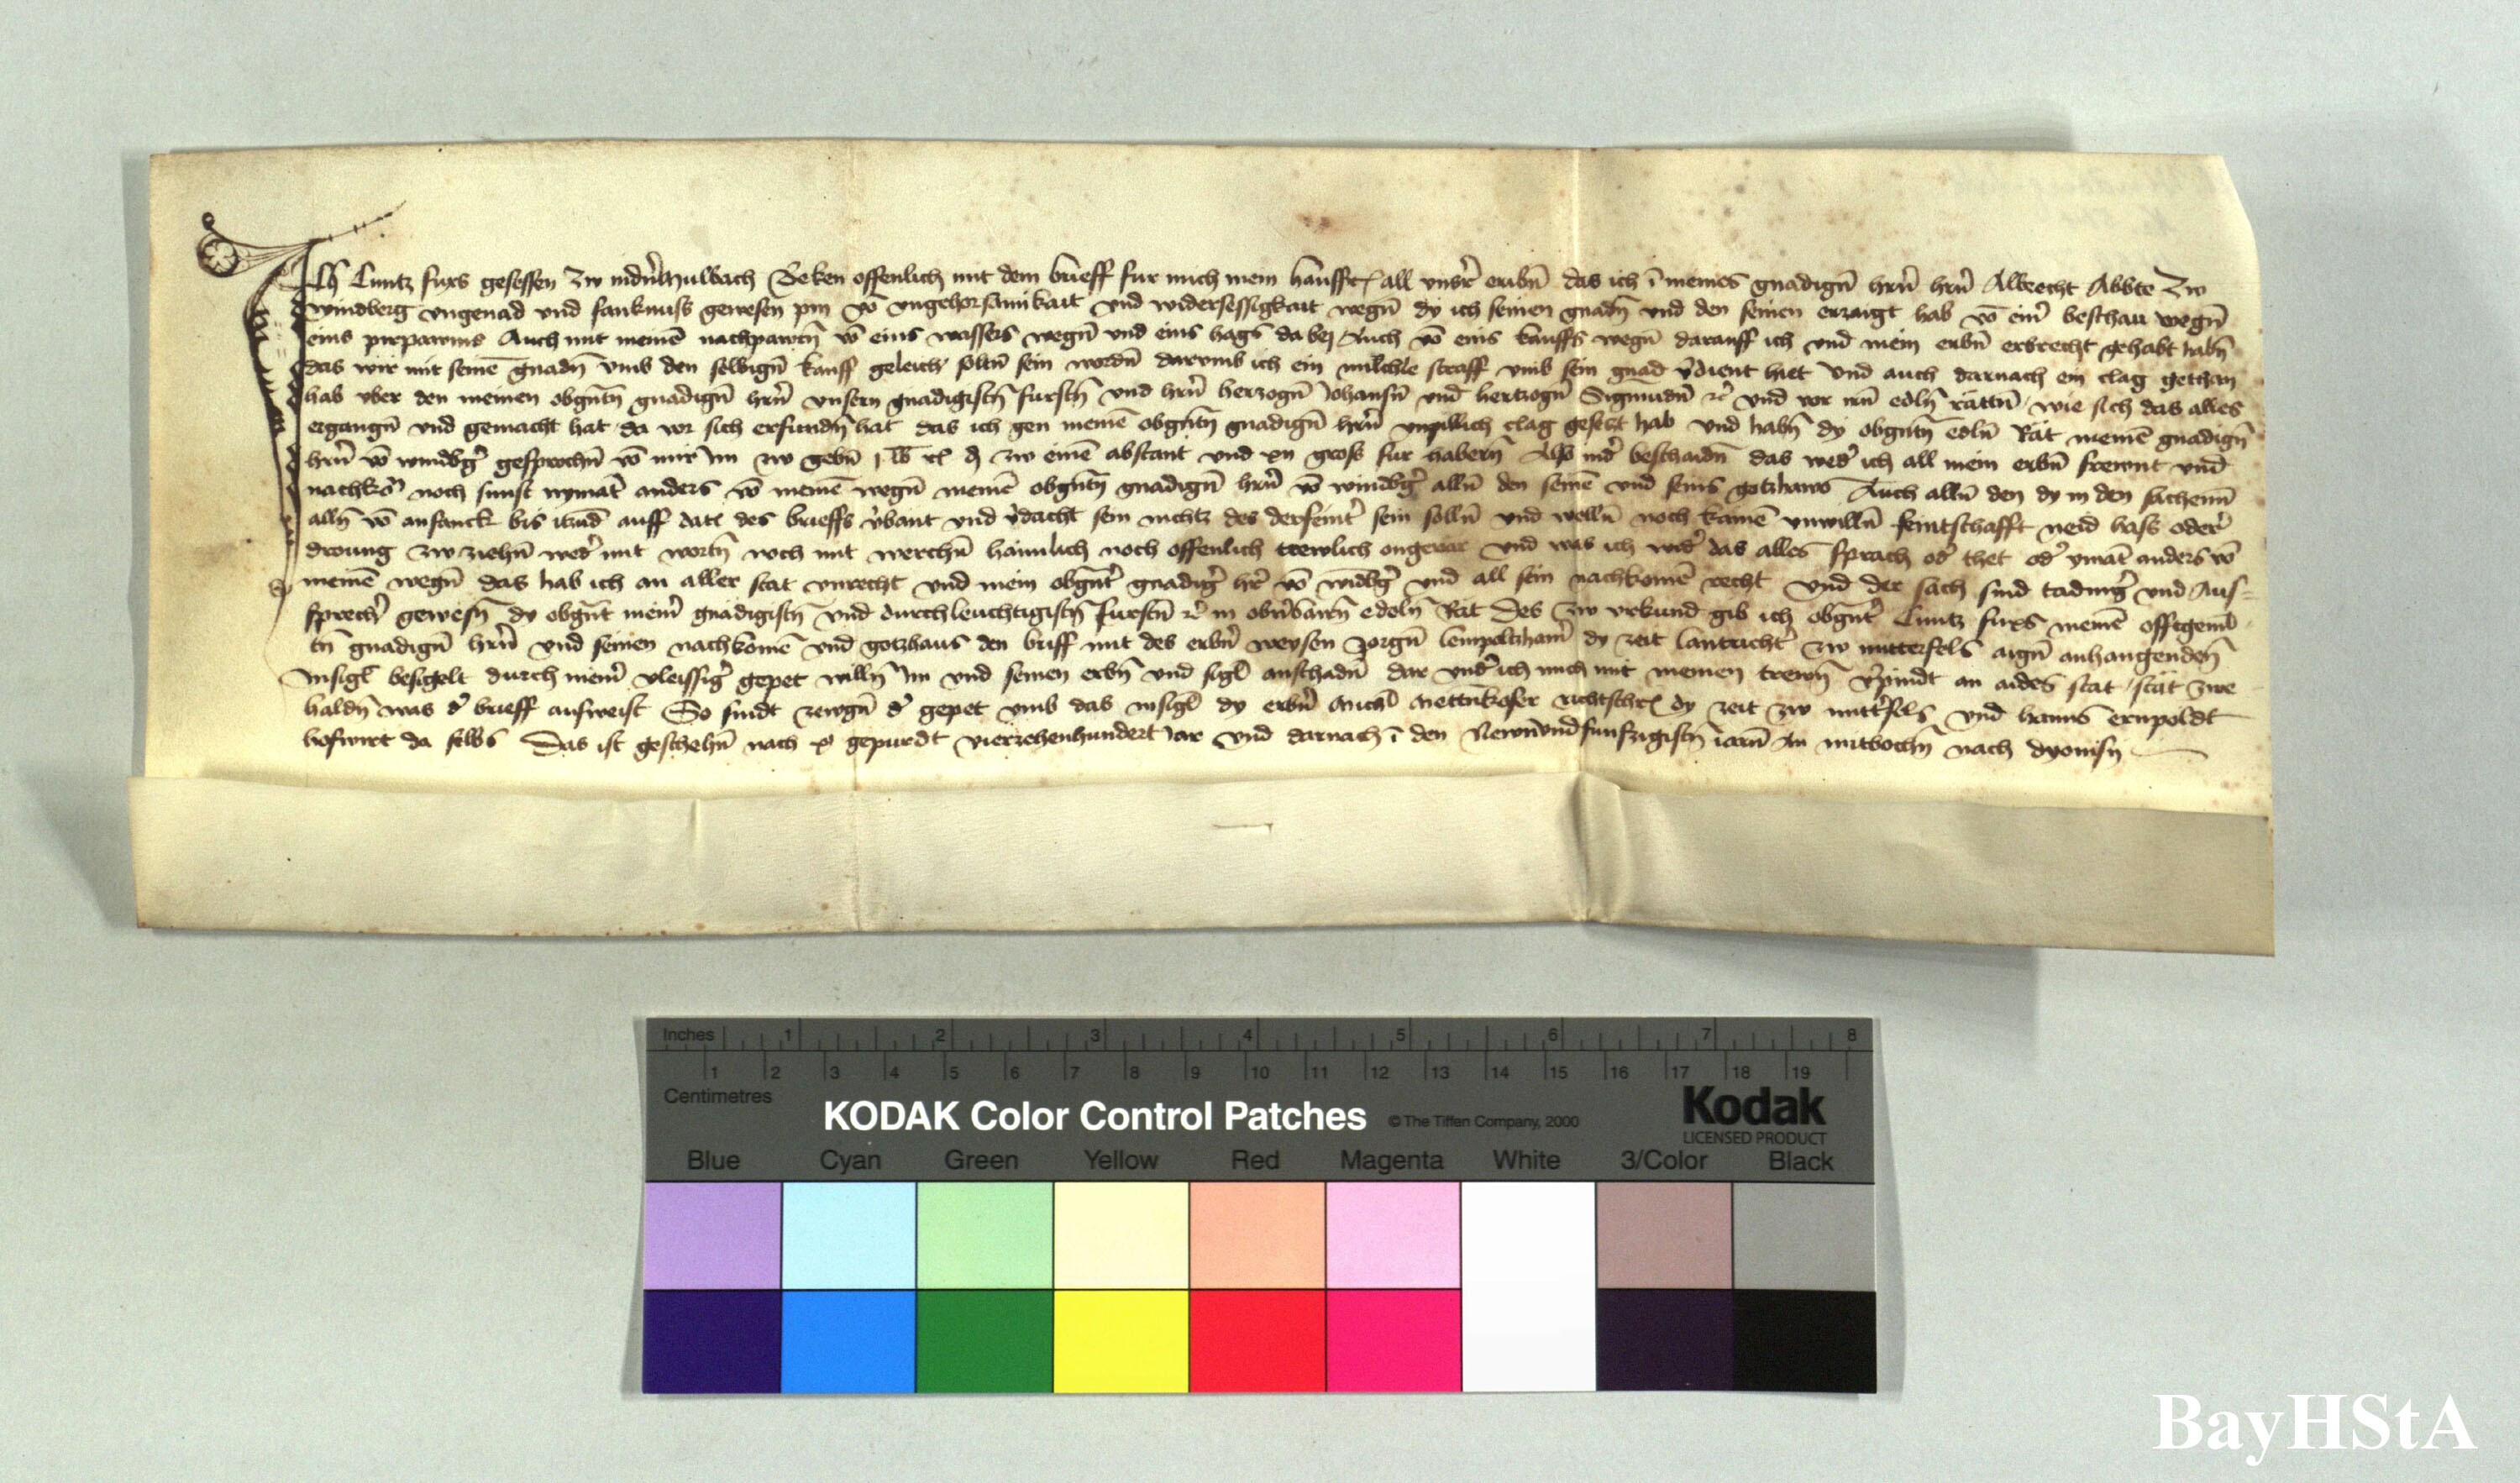 Ich Cuntz fuxs gesessen zw nidn̄ Mulbach Beken offenlich mit dem brieff fur mich mein hausffr all vnsr̄ eribn̄ das ich ī meines gnadign̄ hrn̄ hrn̄ Albrecht Abbte Zw
windberg vngenad vnd fanknuss gewesen pin vō vngehorsamikait vnd widersessigkait wegn̄ dy ich seinen gnadn̄ vnd den seinen erzaigt hab vō eim̄ beschau wegn̄
eins pirpawms Auch mit meinē nachpawrn̄ vō eins wassers wegn̄ vnd eins hags da bej Auch vō eins kauffs wegn̄ darauff ich vnd mein erbn̄ erbrecht gehabt habn̄
das wir mit seinē gnadn̄ vmb den selbign̄ kauff geleich soltn̄ sein wordn̄ darvmb ich ein straff vmb sein gnad v̄dient hiet Vnd auch darnach ein clag gethan
hab vber den meinen obgntn̄ gnadign̄ hrn̄ vnsern gnadigistn̄ furstn̄ vnd hrn̄ herzogn̄ Johansn̄ vnd hertzogn̄ Sigmudn̄ rc̄ vnd vor irn̄ edln̄ rattn̄ wie sich das alles
ergangn̄ vnd gemacht hat da vor sich erfundn̄ hat das ich gen meinē obgntn̄ gnadign̄ hrn̄ vnpillich clag gesetzt hab vnd habn̄ dy obgntn̄ edln̄ Rät meinē gnadign̄
hrn̄ vō windbḡ gesprochn̄ vō mir im zw gebn̄ zw einē abstant vnd xn gross fur habern̄ beschaidn̄ das wed̄ ich all mein erbn̄ frewnt vnd
nachkō noch sunst nymāt anders vō meinē wegn̄ meinē obgntn̄ gnadign̄ hrn̄ vō windbḡ alln̄ den seinē vnd seins gotzhaws Auch alln̄ den dy in den sachenn̄
alln̄ vō anfanck bis itzūd auff dato des brieffs v̄bant vnd v̄dacht sein nichtz des derfeint̄ sein solln̄ vnd welln̄ noch kainē vnwilln̄ feintschafft neid hass oder̄
droung zw ziehn̄ wed̄ mit wortn̄ noch mit werchn̄ haimlich noch offenlich trewlich ongevar vnd was ich wid̄ das alles sprach od̄ thet od̄ ymāt anders vō
meinē wegn̄ das hab ich an aller stat vnrecht vnd mein obgnt̄ gnadiḡ hr̄ vō wīdbḡ vnd all sein nachkomē recht Vnd der sach sind tadinḡ vnd Aus=
sprech̄ gewesn̄ dy obgnt meim̄ gnadigistn̄ vnd durchleuchtigistn̄ furstn̄ rc̄ in obn̄bairn̄ edeln̄ Rät Des zw vrkund gib ich obgnt̄ Cuntz fuxs meinē offtgemel
tn̄ gnadign̄ hrn̄ vnd seinen nachkomē vnd gotzhaus den briff mit des erbn̄ weysen Jorgn̄ lempoltzham̄ dy zeit lantricht̄ zw mitterfels aign̄ anhangenden̄
Insigl besigelt durch meim̄ vleissiḡ gepet willn̄ im vnd seinen erbn̄ vnd sigl anschadn̄ dar vnd̄ ich mich mit meinen trewn̄ v̄pindt an aides stat stät zwe
haldn̄ was d̄ brieff aufweist So sindt zewgn̄ d̄ gepet vmb das insigl dy erbn̄ Michl Mettnkofer richtschr̄ dy zeit zw mitt̄fels vnd hanns ernpoldt
hofwirt da selbs Das ist geschehn̄ nach xp̄ gepurdt vierzehenhundert Jar vnd darnach ī den Newn̄vndfunfzigistn̄ iarn̄ An mitbochn̄ nach dyonisy
Inches 1 2 3 4 5 6 7 8
1 2 3 4 5 6 7 8 9 10 11 12 13 14 15 16 17 18 19
Centimetres
KODAK Color Control Patches © The Tiffen Company, 2000
Kodak
LICENSED PRODUCT
Blue Cyan Green Yellow Red Magenta White 3/Color Black
BayHStA